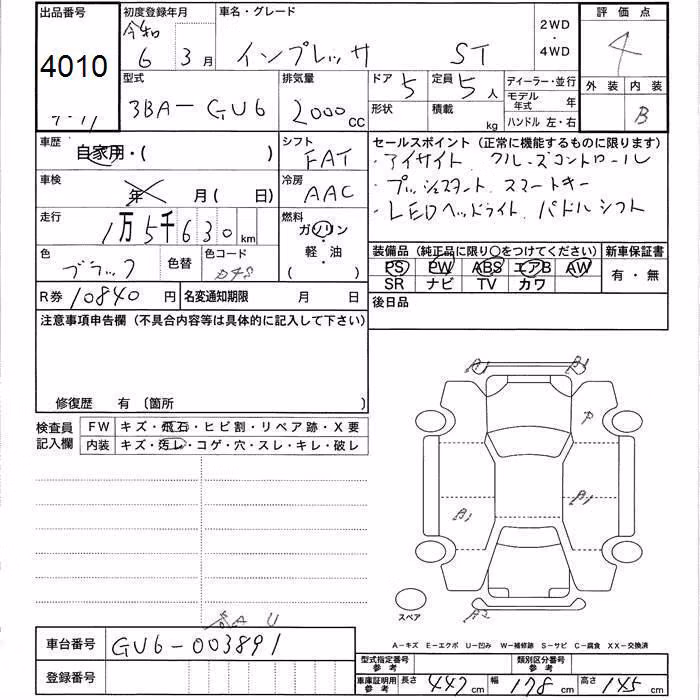 出品番号 初度登録年月 車名・グレード 2WD ・ 4WD 評価点
4010 令和 6 3月 インプレッサ ST 4
型式 排気量 ドア 5 定員 5人 ディーラー・並行 外装 内装
3BA-GU6 2000cc 形状 積載 kg モデル年式 年 B
ハンドル 左・右
7-11
車歴 自家用・( ) シフト FAT セールスポイント (正常に機能するものに限ります)
・アイサイト クルーズコントロール
車検 年 月( 日) 冷房 AAC ・プッシュスタート スマートキー
走行 1万5千630km 燃料 ガソリン ・ 軽・油 ( ) ・LEDヘッドライト パドルシフト
色 ブラック 色替 色コード D4S 装備品 (純正品に限り〇をつけてください) 新車保証書
PS PW ABS エアB AW 有・無
SR ナビ TV カワ
R券 10840円 名変通知期限 月 日 後日品
注意事項申告欄 (不具合内容等は具体的に記入して下さい)
修復歴 有 〔箇所 〕
検査員記入欄 FW キズ・飛石・ヒビ割・リペア跡・X要
内装 キズ・汚レ・コゲ・穴・スレ・キレ・破レ
P
B1 B1
スペア
A U
A-キズ E-エクボ U-凹み W-補修跡 S-サビ C-腐食 XX-交換済
車台番号 GU6-003891
型式指定番号 参考 類別区分番号 参考
登録番号 車庫証明用 参考 長さ 447cm 幅 178cm 高さ 145cm